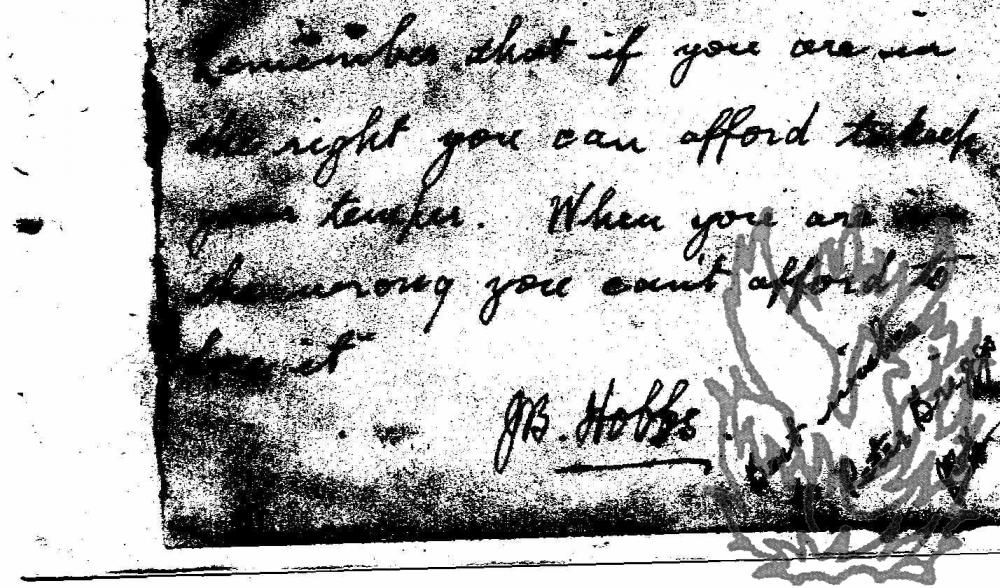 Remember that if you are in
the right you can afford to keep
your temper. When you are in
the wrong you can't afford to
lose it
JB. Hobbs
Best wishes
Peter